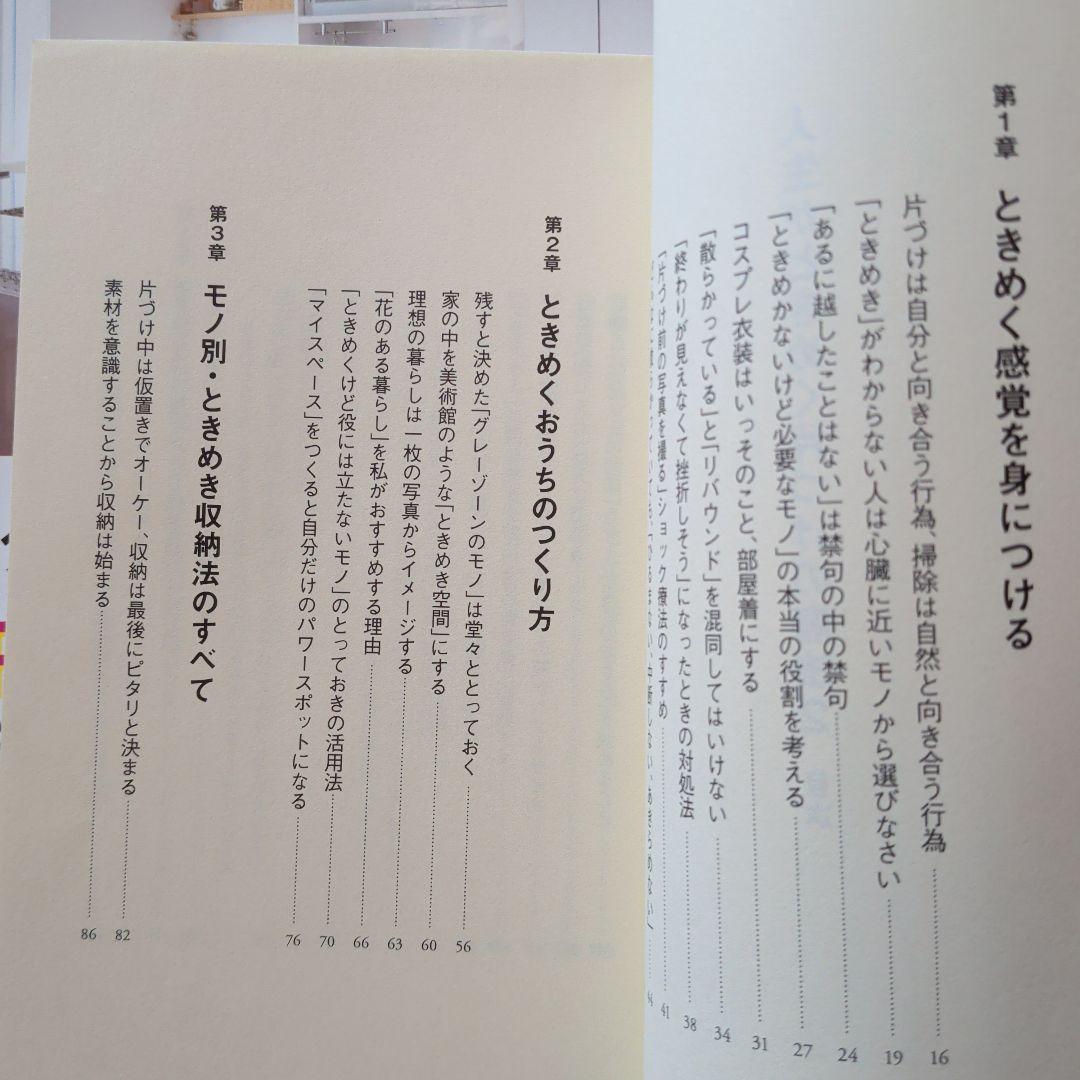 第1章 ときめく感覚を身につける
片づけは自分と向き合う行為、掃除は自然と向き合う行為 16
「ときめき」がわからない人は心臓に近いモノから選びなさい 19
「あるに越したことはない」は禁句の中の禁句 24
「ときめかないけど必要なモノ」の本当の役割を考える 27
コスプレ衣装はいっそのこと、部屋着にする 31
「散らかっている」と「リバウンド」を混同してはいけない 34
「終わりが見えなくて挫折しそう」になったときの対処法 38
「片づけ前の写真を撮る」ショック療法のすすめ 41
ひるまない、中断しない、あきらめない」 44
第2章 ときめくおうちのつくり方
残すと決めた「グレーゾーンのモノ」は堂々ととっておく 56
家の中を美術館のような「ときめき空間」にする 60
理想の暮らしは一枚の写真からイメージする 63
「花のある暮らし」を私がおすすめする理由 66
「ときめくけど役には立たないモノ」のとっておきの活用法 70
「マイスペース」をつくると自分だけのパワースポットになる 76
第3章 モノ別・ときめき収納法のすべて
片づけ中は仮置きでオーケー、収納は最後にピタリと決まる 82
素材を意識することから収納は始まる 86